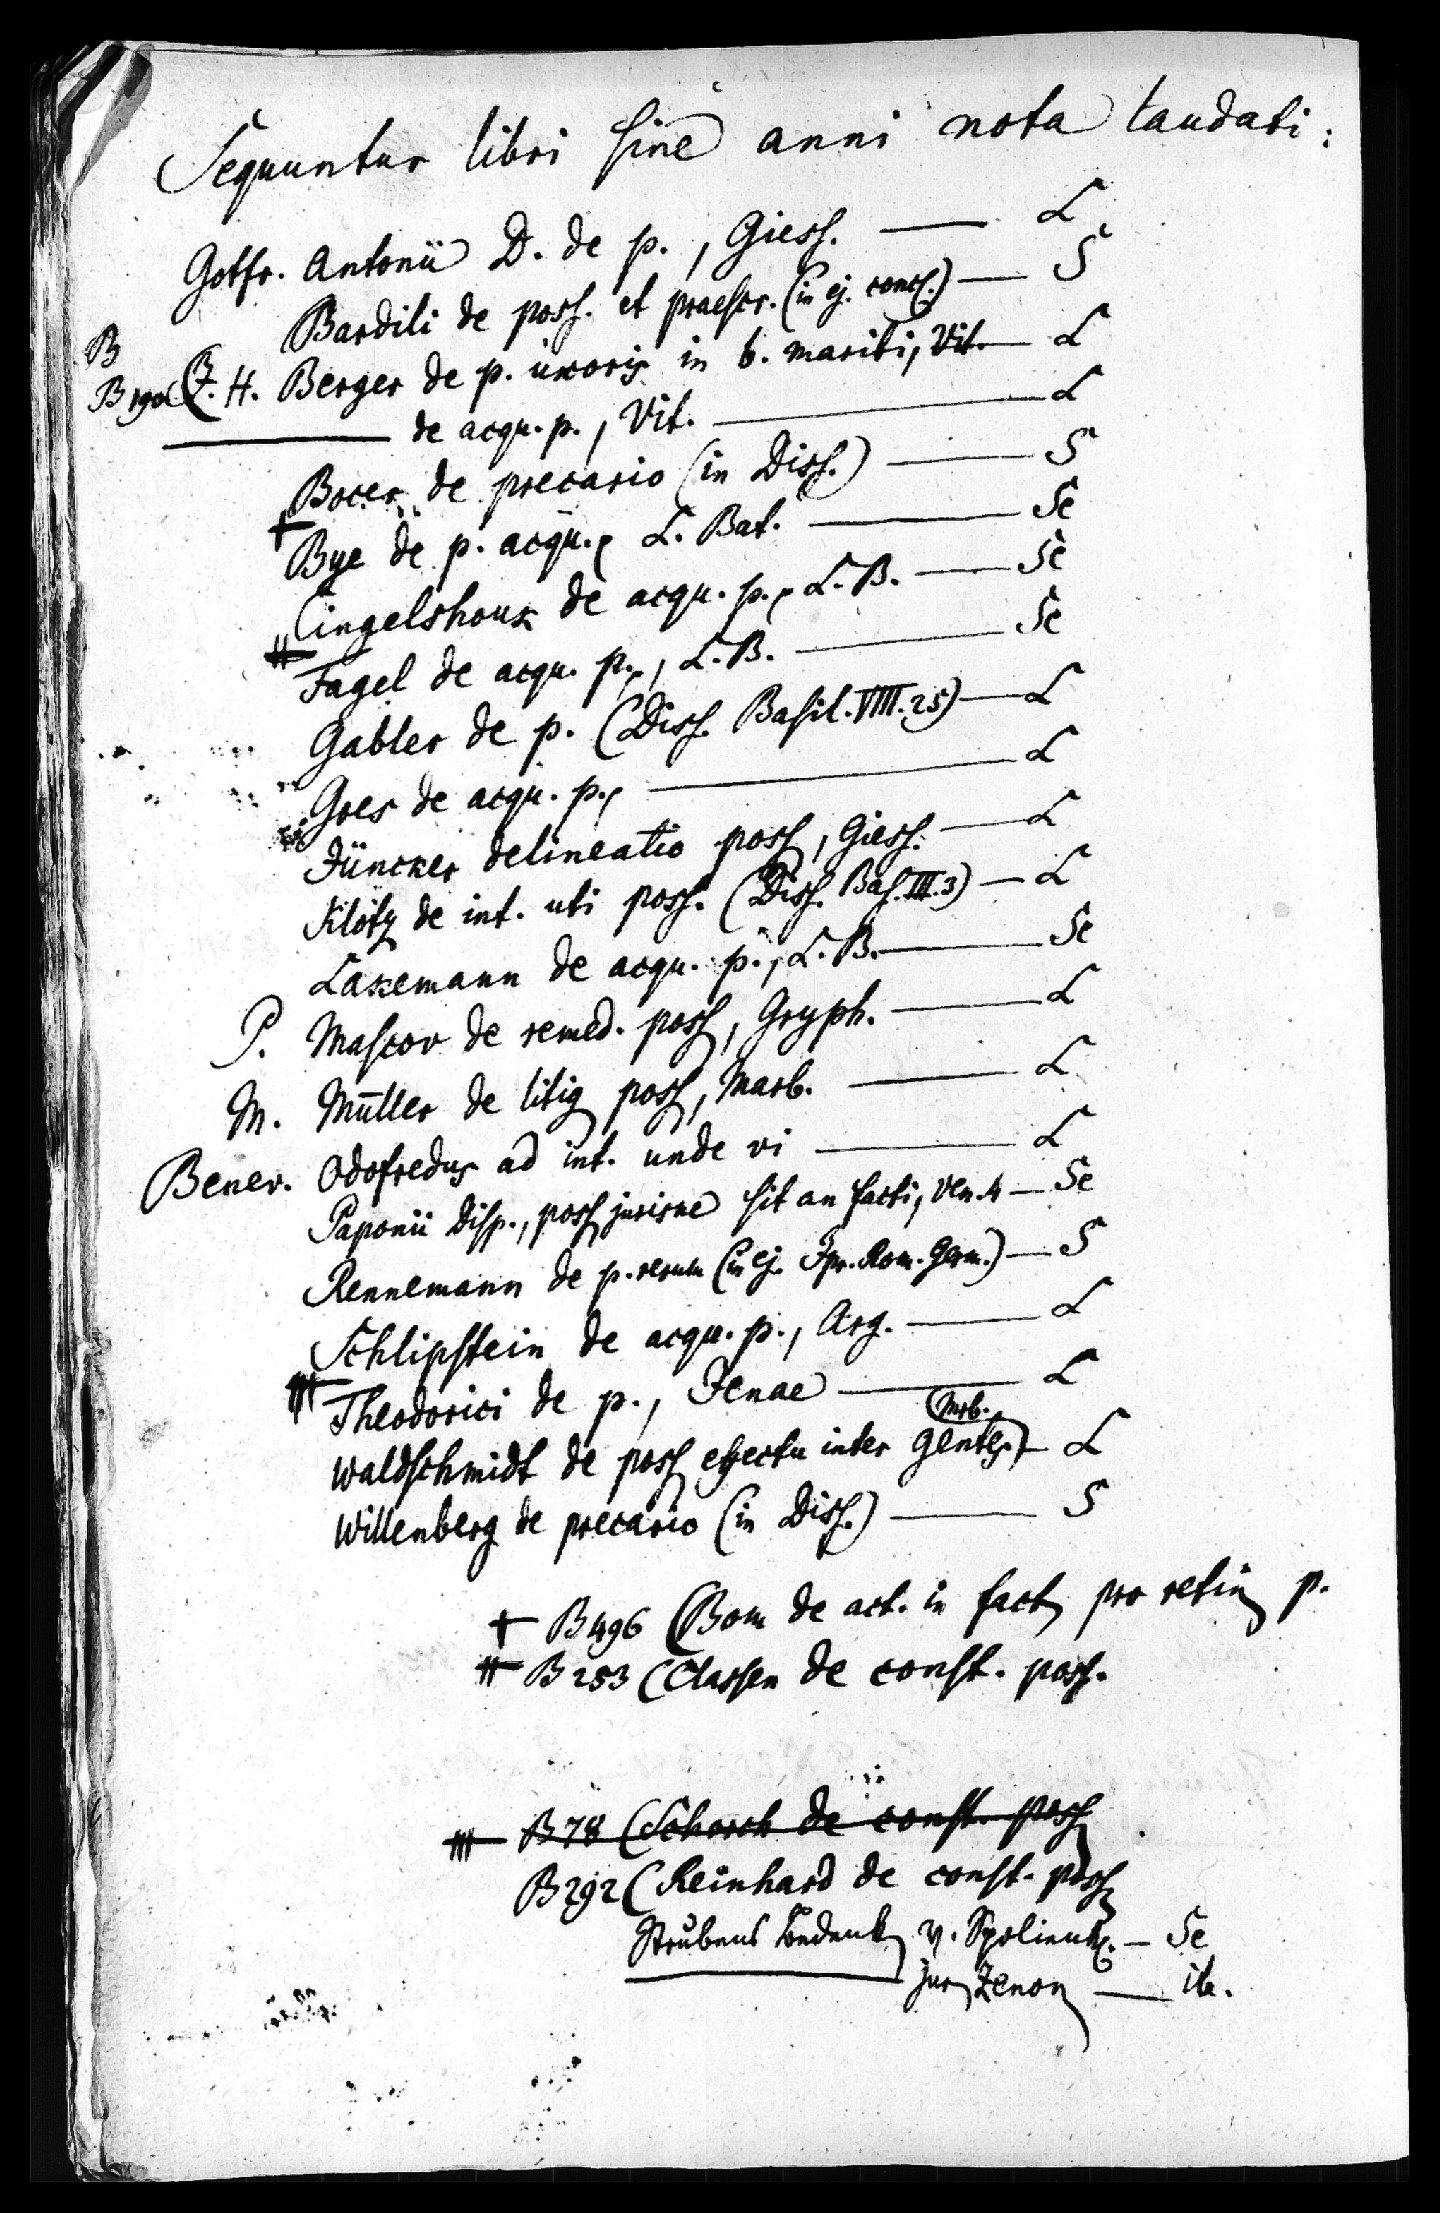 Sequuntur libri sine anni nota laudati:
Gotfr. Antonii D. de p., Giess. — L
Bardili de poss. et praescr. (in ej. concl.) — S
B
B190 (J. H. Berger de p. uxoris in b. mariti, Vit. — L
— de acqu. p., Vit. — L
Bocer de precario (in Diss.) — S
†
Bye de p. acqu., L. Bat. — Se
Cingelshouk de acqu. p., L. B. — Se
Fagel de acqu. p., L. B. — Se
Gabler de p. (Diss. Basil. VIII. 25) — L
Goes de acqu. p., — L
Jüncker delineatio poss, Giess. — L
Klötz de int. uti poss. (Diss. Bas. III. 3) — L
Lakemann de acqu. p., L. B. — Se
P. Mascov de remed. poss, Gryph. — L
M. Müller de litig poss, Marb. — L
Benev. Odofredus ad int. unde vi — L
Paponii Disp., poss jurisne sit an facti, Ven. 4 — Se
Rennemann de p. rerum (in ej. Jpr. Rom. Germ.) — S
Schlipstein de acqu. p., Arg. — L
Theodorici de p., Jenae — L
(Mrb.
Waldschmidt de poss effectu inter gentes) — L
Willenberg de precario (in Diss.) — S
† B496 (Bom de act. in fact pro retin p.
B253 (Classen de const. poss.
B78 (Schorch de const. poss
B292 (Reinhard de const. poss
Strubens Bedenk v. Spolienkl. — Se
— jur Zenon — ib.